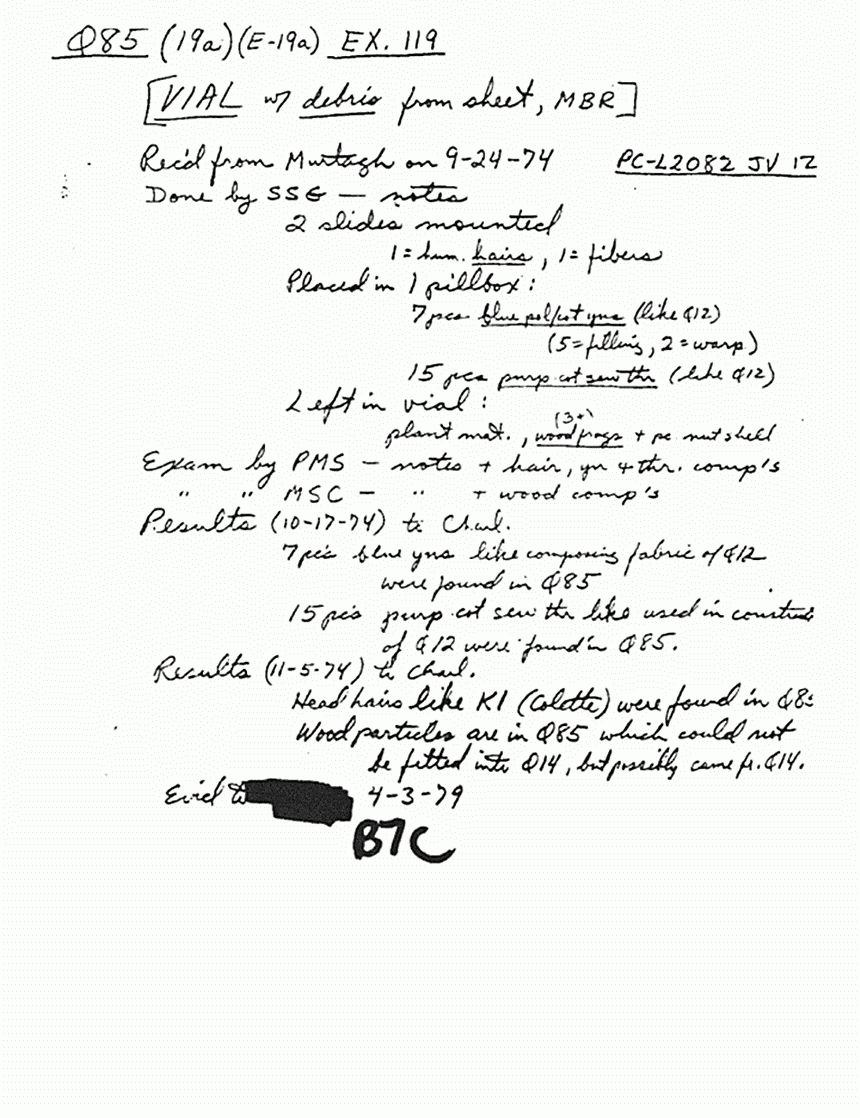 Q85 (19a)(E-19a) EX. 119
[VIAL w/ debris from sheet, MBR]
Rec'd from Murtagh on 9-24-74 PC-L2082 JV 12
Done by SSG — notes
2 slides mounted
1 = hum. hairs, 1 = fibers
Placed in 1 pillbox:
7 pcs blue pol/cot yns (like Q12)
(5 = filling, 2 = warp)
15 pcs purp cot sew thr (like Q12)
Left in vial:
(3+)
plant mat., wood frags + pc nut shell
Exam by PMS — notes + hair, yn + thr. comp's
" " MSC — " + wood comp's
Results (10-17-74) to Charl.
7 pcs blue yns like composing fabric of Q12
were found in Q85
15 pcs purp cot sew thr like used in construc
of Q12 were found in Q85.
Results (11-5-74) to Charl.
Head hairs like K1 (Colette) were found in Q85
Wood particles are in Q85 which could not
be fitted into Q14, but possibly came fr. Q14.
Evid to 4-3-79
B7C